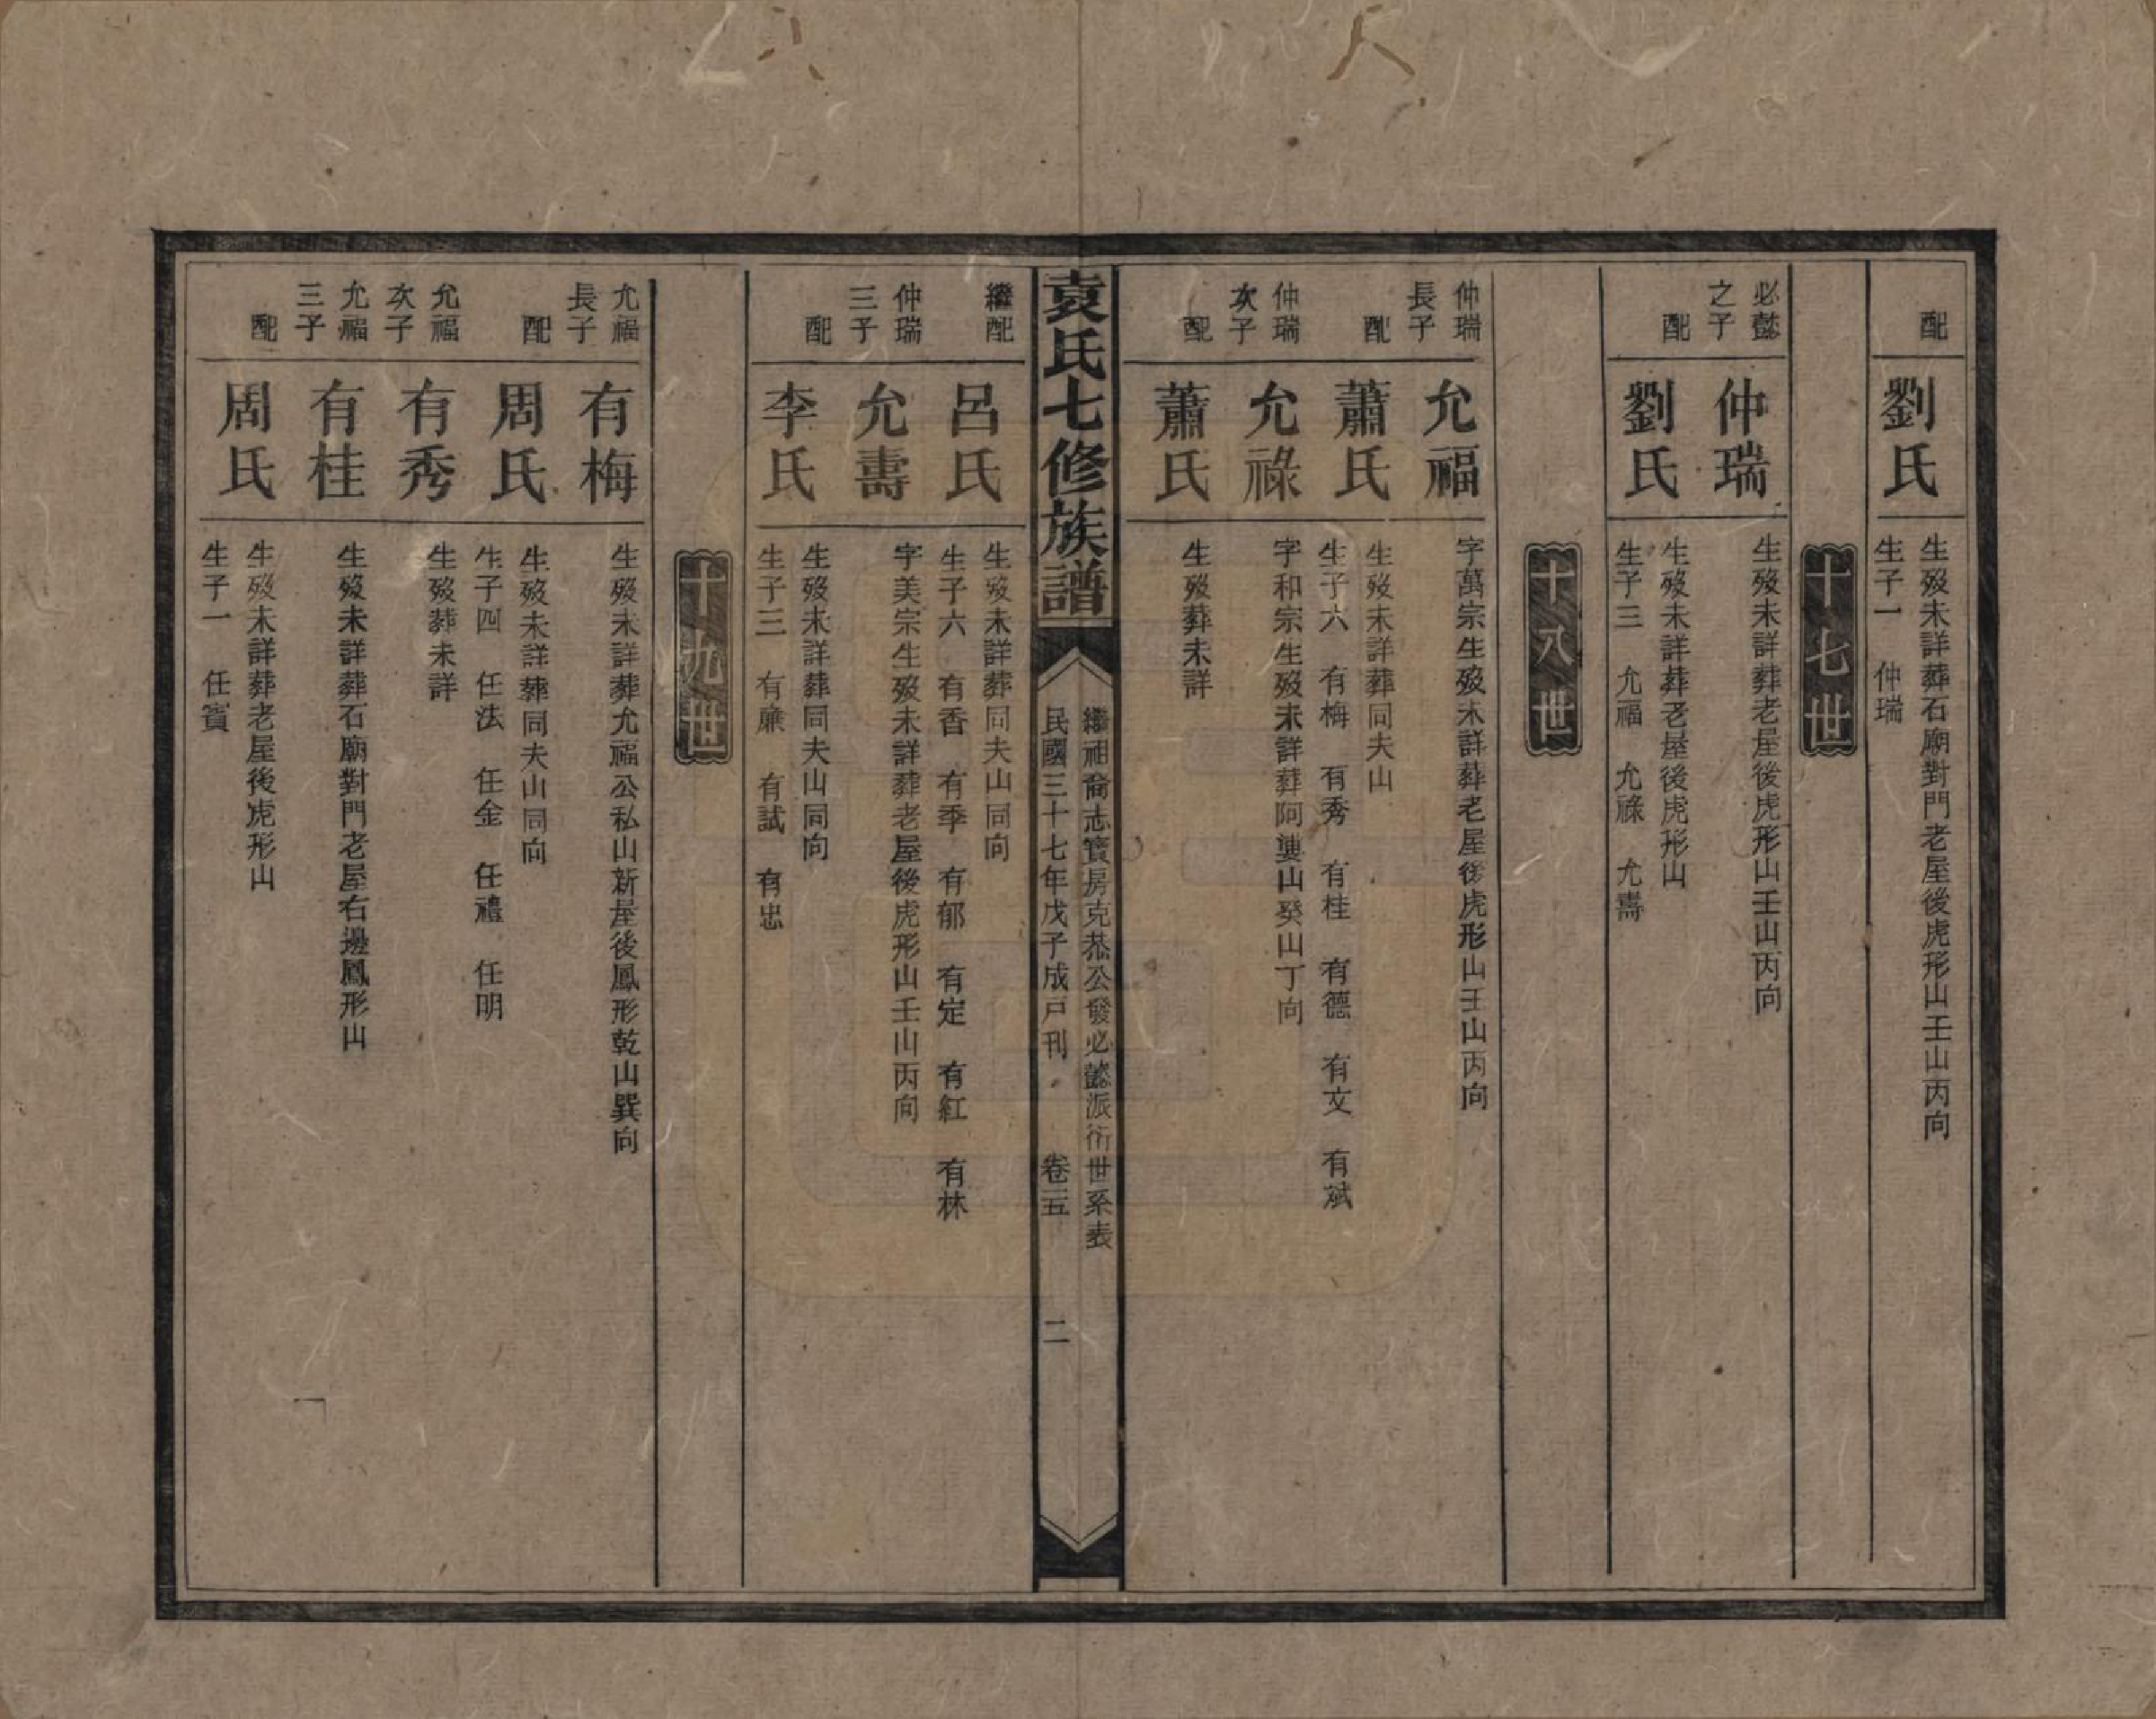 配
劉氏
生歿未詳葬石廟對門老屋後虎形山壬山丙向
生子一 仲瑞
十七世
必懿
之子
仲瑞
生歿未詳葬老屋後虎形山壬山丙向
配
劉氏
生歿未詳葬老屋後虎形山
生子三 允福 允祿 允壽
十八世
仲瑞
長子
允福
字萬宗生歿未詳葬老屋後虎形山壬山丙向
配
蕭氏
生歿未詳葬同夫山
生子六 有梅 有秀 有桂 有德 有文 有斌
仲瑞
次子
允祿
字和宗生歿未詳葬阿婁山癸山丁向
配
蕭氏
生歿葬未詳
袁氏七修族譜
繼祖裔志寳房克恭公發必懿派衍世系表
民國三十七年戊子成戸刊 卷三五 二
繼配
呂氏
生歿未詳葬同夫山同向
生子六 有香 有季 有郁 有定 有紅 有林
仲瑞
三子
允壽
字美宗生歿未詳葬老屋後虎形山壬山丙向
配
李氏
生歿未詳葬同夫山同向
生子三 有廉 有試 有忠
十九世
允福
長子
有梅
生歿未詳葬允福公私山新屋後鳳形乾山巽向
配
周氏
生歿未詳葬同夫山同向
生子四 任法 任金 任禮 任明
允福
次子
有秀
生歿葬未詳
允福
三子
有桂
生歿未詳葬石廟對門老屋右邊鳳形山
配
周氏
生歿未詳葬老屋後虎形山
生子一 任賓